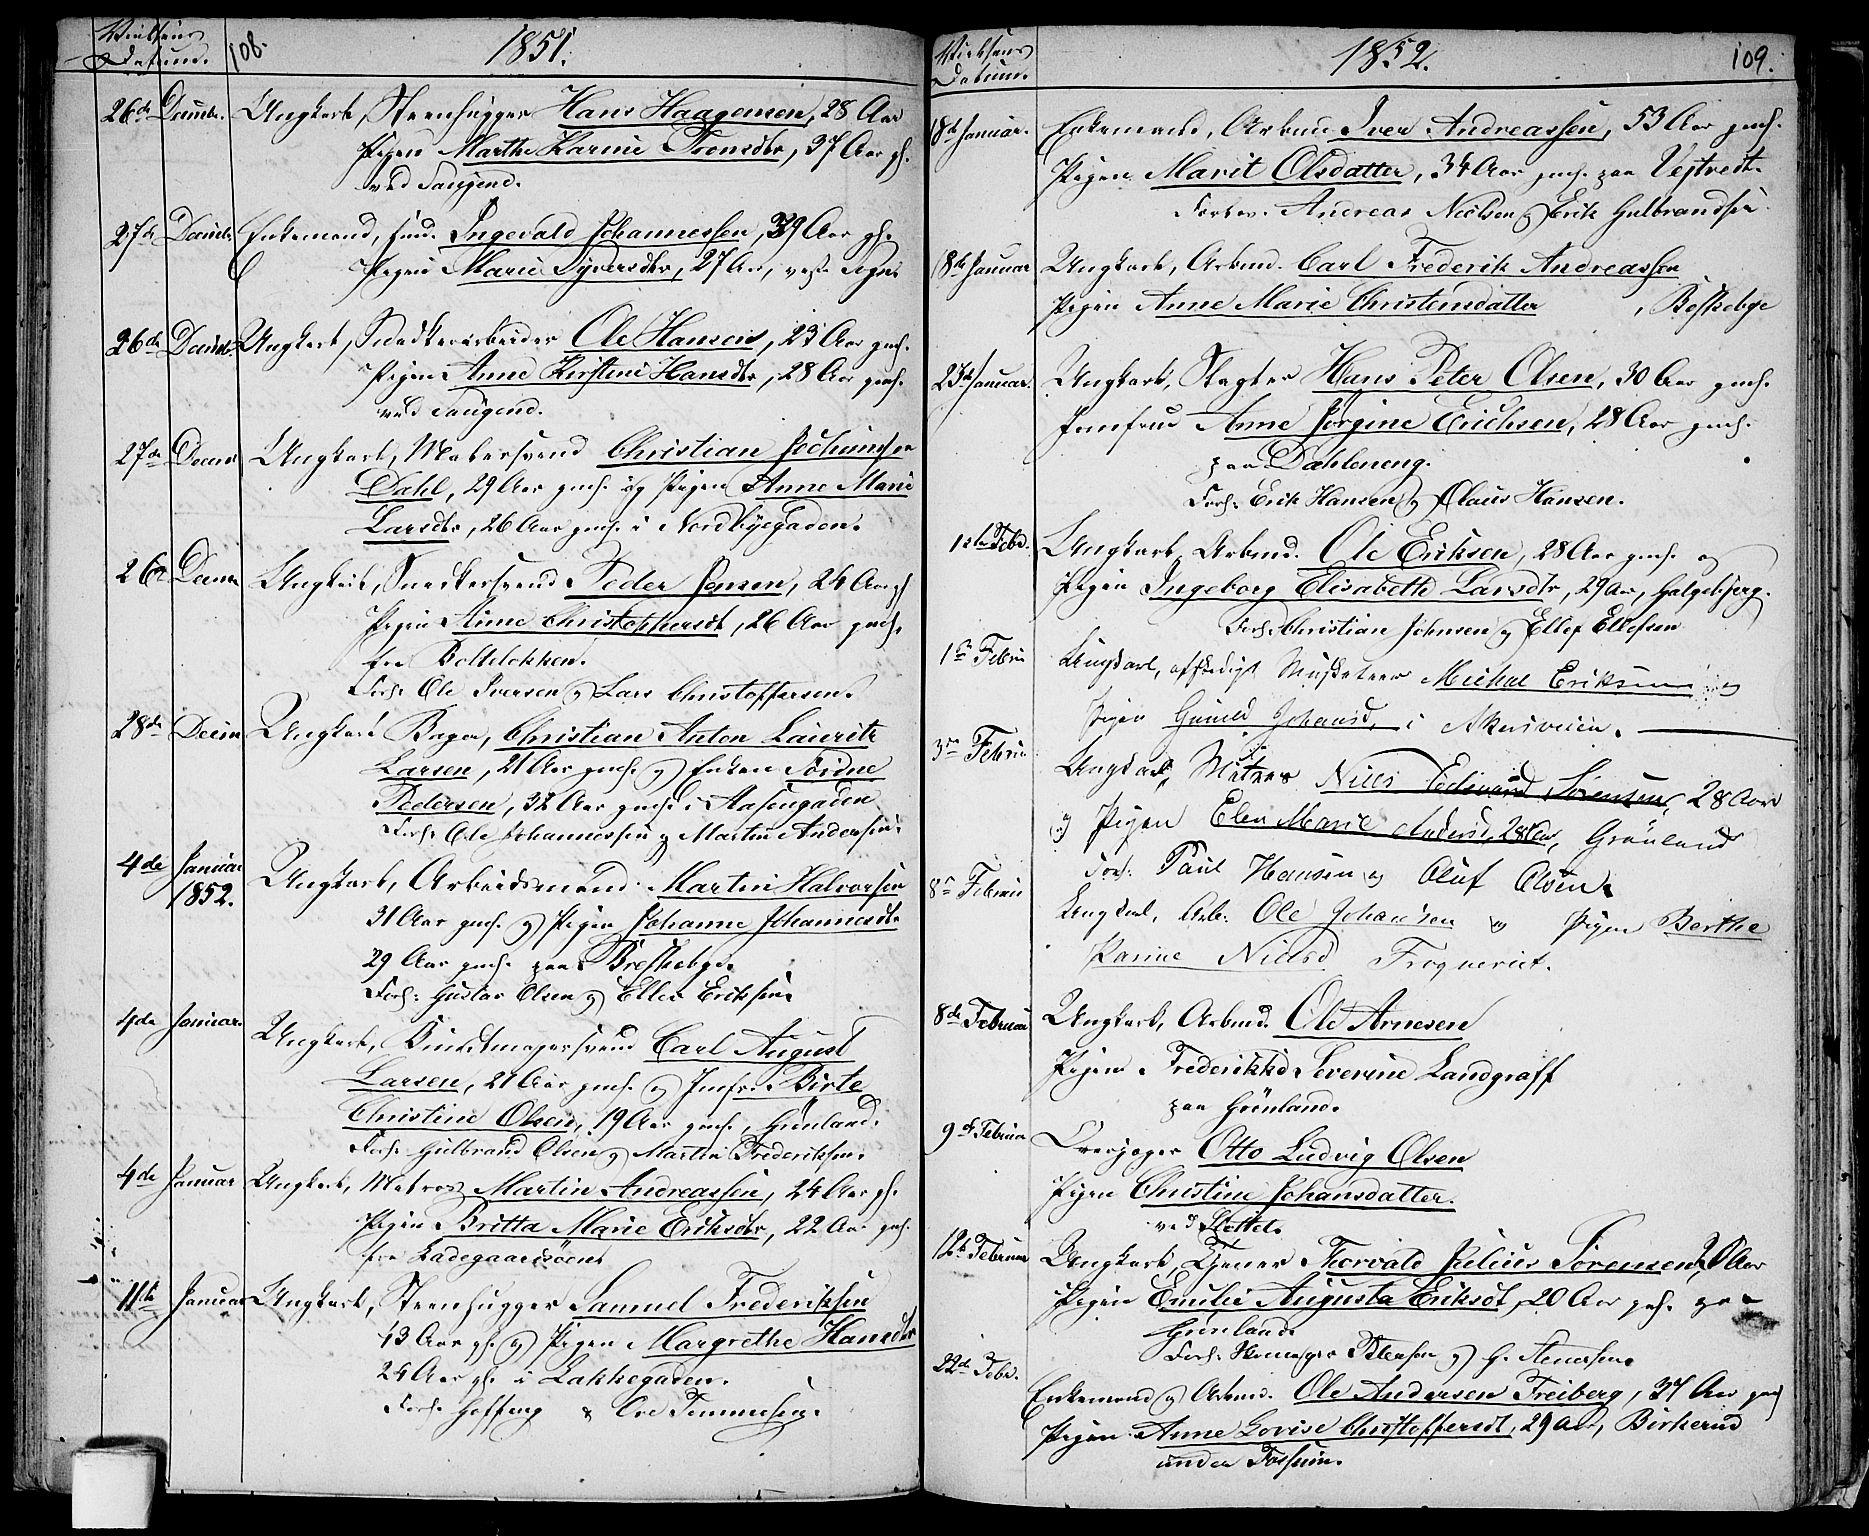 Vielsens
Datum.
108.
1851.
26de Decmbr. Ungkarl, Steenhugger Hans Haagensen, 28 Aar
Pigen Marthe Karine Tronsdtr, 37 Aar gh.
ved Saugend.
27de Decmbr. Enkemand, Ingevald Johannessen, 39 Aar gh.
Pigen Marie Syversdtr, 27 Aar,
26de Decmbr Ungkarl, Snedkerarbeider Ole Hansen, 23 Aar gmh.
Pigen Anne Kirstine Hansdtr, 28 Aar gmh.
ved Saugend.
27de Decmb Ungkarl, Malersvend Christian Jochumsen
Dahl, 29 Aar gmh. og Pigen Anne Marie
Larsdtr, 26 Aar gmh. i Nordbyegaden.
26 Decmbr Ungkarl, Snedkersvend Peder Jensen, 24 Aar gh
Pigen Anne Christophersdt, 26 Aar gmh.
fra Bolteløkken.
Forl. Ole Iversen og Lars Christoffersen.
28de Decmbr Ungkarl Bager, Christian Anton Lauritz
Larsen, 21 Aar gmh. og Enken
Pedersen, 32 Aar gmh. i Aasengaden
Forl. Ole Johannessen og Martin Andersen.
4de Januar
1852. Ungkarl, Arbeidsmand Martin Halvorsen
31 Aar gmh. og Pigen Johanne Johannesdtr
29 Aar gmh. paa Breskebye.
Forl: Gustav Olsen og Ellev Eriksen.
4de Januar. Ungkarl, Buntmagersvend Carl August
Larsen, 21 Aar gmh. og Jomfr. Birte
Christine Olsen, 19 Aar gmh., Grønland.
Forl. Gulbrand Olsen og Martin Frederiksen.
4de Januar Ungkarl, Matros Martin Andreassen, 24 Aar gh.
Pigen Britta Marie Eriksdtr, 22 Aar gmh.
fra Ladegaardsøen
11te Januar Ungkarl, Steenhugger Samuel Frederiksen
43 Aar gh. og Pigen Margrethe Hansdtr
24 Aar gh. i Lakkegaden.
Forl. Høffeng & Ole
Vielsens
Datum.
1852.
109.
18de Januar. Enkemand, Arbmd Iver Andreassen, 53 Aar gmh.
Pigen Marit Olsdatter, 34 Aar gmh. paa
Forlov. Andreas Nielsen og Erik Gulbrandsen.
18de Januar Ungkarl, Arbmd. Carl Frederik Andreassen
Pigen Anne Marie Christensdatter , Beskebye
23de Januar. Ungkarl, Slagter Hans Peter Olsen, 30 Aar gmh.
Jomfrue Anne Jørgine Erichsen, 28 Aar gmh.
paa Dæhleneng.
Forl. Erik Hansen og Olaus Hansen.
1ste Febr. Ungkarl, Arbmd. Ole Eriksen, 28 Aar gmh. og
Pigen Ingeborg Elisabeth Larsdtr, 29 Aar, Galgebjerg.
Forl. Christian Johnsen og Ellef Ellefsen
1ste Februr Ungkarl, afskediget Musketeer Michal Eriksen og
Pigen Gunild Johansd. i Akersveien.
3die Februr Ungkarl, Matros Niels Edvard Sørensen, 28 Aar
og Pigen Elen Marie Andersd, 28 Aar, Grønland
Forl. Paul Hansen og Oluf Olsen.
8de Februr Ungkarl, Arb. Ole Johansen og Pigen Berthe
Karine Nielsd. Frogneriet.
8de Februar Ungkarl, Arbmd. Ole Arnesen
Pigen Frederikke Severine Landgraff
paa Grønland.
9de Februar Overjæger Otto Ludvig Olsen
Pigen Christine Johansdatter.
ved Slottet.
12te Februar Ungkarl, Tjener Thorvald Julius Sørensen, Aar
Pigen Emilie Augusta Eriksdt, 20 Aar gh. paa
Grønland.
Forl. Petersen og G.
22de Febr. Enkemand og Arbmd. Ole Andersen Freiberg, 37 Aar gmh
Pigen Anne Lovise Christoffersdt, 29 Aar, Birkerud
under Fossum.